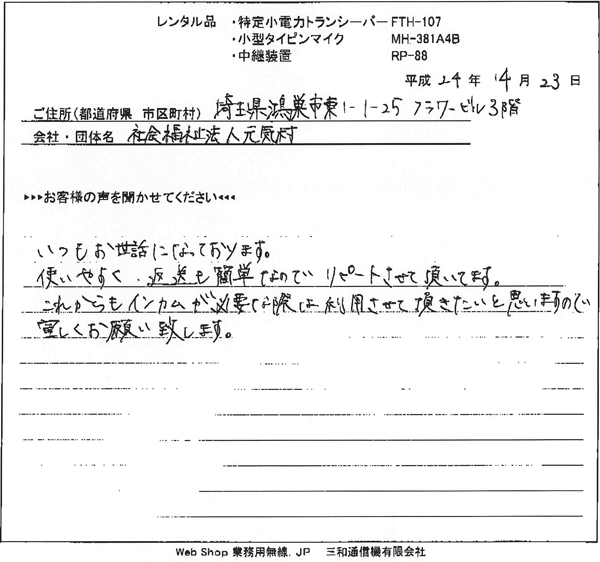 レンタル品 ・特定小電力トランシーバー FTH-107
・小型タイピンマイク MH-381A4B
・中継装置 RP-88
平成 24 年 4 月 23 日
ご住所(都道府県 市区町村) 埼玉県鴻巣市東1-1-25 フラワービル3階
会社・団体名 社会福祉法人元気村
▸▸▸お客様の声を聞かせてください◂◂◂
いつもお世話になっております。
使いやすく、返送も簡単なので リピートさせて頂いてます。
これからもインカムが必要な際は利用させて頂きたいと思いますので
宜しくお願い致します。
Web Shop 業務用無線.JP 三和通信機有限会社